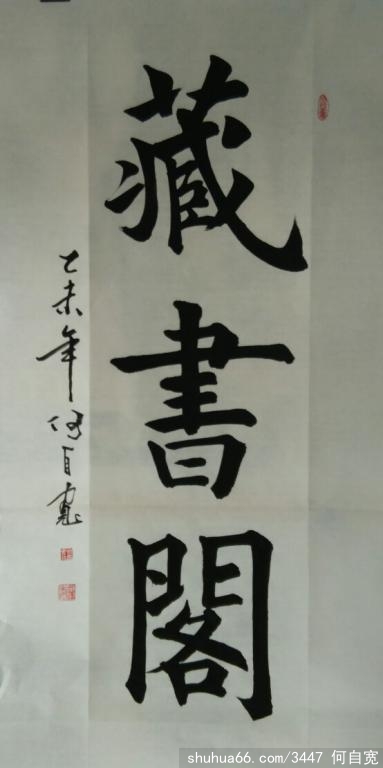 藏書閣
乙未年何自寬
shuhua66.com/3447 何自宽